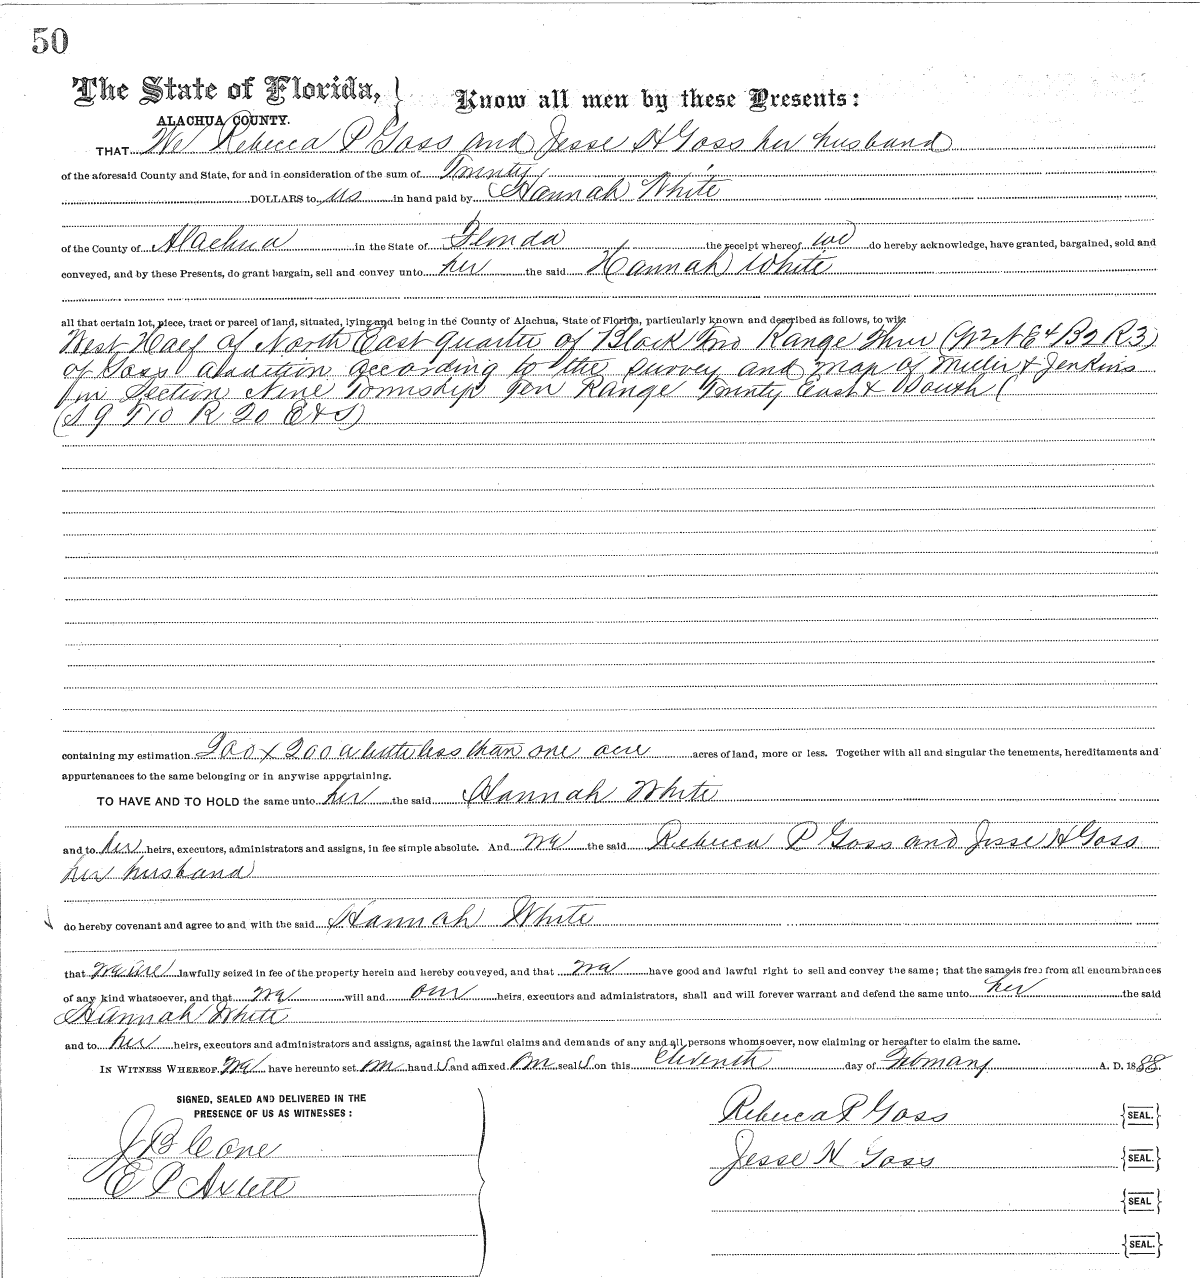 50
The State of Florida, } Know all men by these Presents:
ALACHUA COUNTY.
THAT We Rebecca P Goss and Jesse H Goss her husband
of the aforesaid County and State, for and in consideration of the sum of Twenty
DOLLARS to us in hand paid by Hannah White
of the County of Alachua in the State of Florida the receipt whereof we do hereby acknowledge, have granted, bargained, sold and
conveyed, and by these Presents, do grant bargain, sell and convey unto her the said Hannah White
all that certain lot, piece, tract or parcel of land, situated, lying and being in the County of Alachua, State of Florida, particularly known and described as follows, to wit:
West Half of North East Quarter of Block Two Range Three (W2 NE4 B2 R3)
of Goss addition according to the survey and map of Miller & Jenkins
in Section Nine Township Ten Range Twenty East & South (
(S 9 T10 R 20 E&S)
containing my estimation 200 x 200 a little less than one acre acres of land, more or less. Together with all and singular the tenements, hereditaments and
appurtenances to the same belonging or in anywise appertaining.
TO HAVE AND TO HOLD the same unto her the said Hannah White
and to her heirs, executors, administrators and assigns, in fee simple absolute. And we the said Rebecca P Goss and Jesse H Goss
her husband
do hereby covenant and agree to and with the said Hannah White
that we are lawfully seized in fee of the property herein and hereby conveyed, and that we have good and lawful right to sell and convey the same; that the same is free from all encumbrances
of any kind whatsoever, and that we will and our heirs, executors and administrators, shall and will forever warrant and defend the same unto her the said
Hannah White
and to her heirs, executors and administrators and assigns, against the lawful claims and demands of any and all persons whomsoever, now claiming or hereafter to claim the same.
IN WITNESS WHEREOF, we have hereunto set our hand s and affixed our seal s on this Eleventh day of February A. D. 1888.
SIGNED, SEALED AND DELIVERED IN THE
PRESENCE OF US AS WITNESSES:
Rebecca P Goss {SEAL.}
J B Cone
Jesse H Goss {SEAL.}
E P Axlett
{SEAL}
{SEAL.}